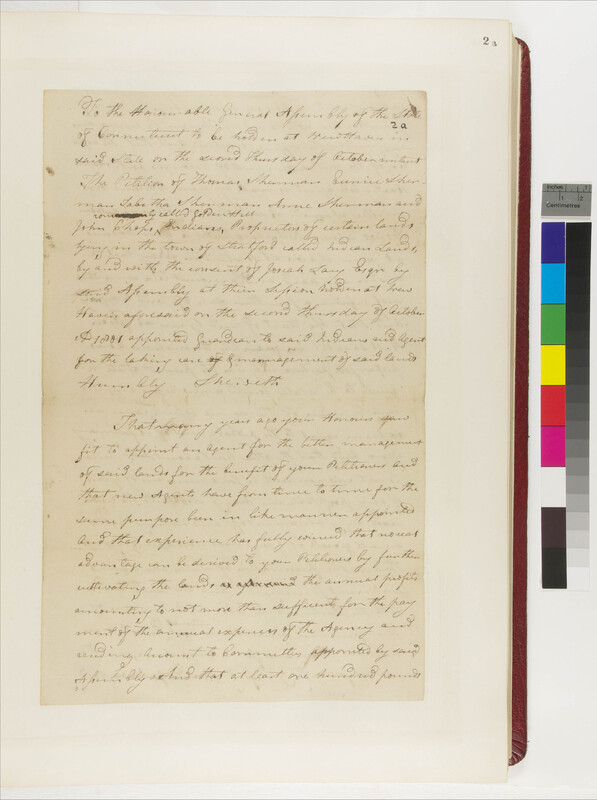 2a
2a
To the Honourable General Assembly of the State
of Connecticut to be holden at New Haven in
said State on the second Thursday of October instant
The Petition of Thomas Sherman Eunice Sher-
man Tabetha Sherman Anne Sherman and
commonly called Golden Hill
John Chops, Indians, Proprietors of certain lands
lying in the town of Stratford called Indian Lands,
by and with the consent of Josiah Lacy Esqr by
said Assembly at their Session holden at New
Haven aforesaid on the second Thursday of October
AD 1801 appointed Guardian to said Indians and Agent
for the taking care of & management of said lands
Humbly Sheweth
That many years ago your Honours saw
fit to appoint an agent for the better management
of said lands for the benefit of your Petitioners and
that new Agents have from time to time for the
same purpose been in like manner appointed
And that experience has fully evinced that no real
advantage can be derived to your Petitioners by further
cultivating the lands the annual profits
amounting to not more than sufficient for the pay
ment of the annual expences of the Agency and
rending Account to Committees appointed by said
Assembly And that at least one hundred pounds
Inches
Centimetres